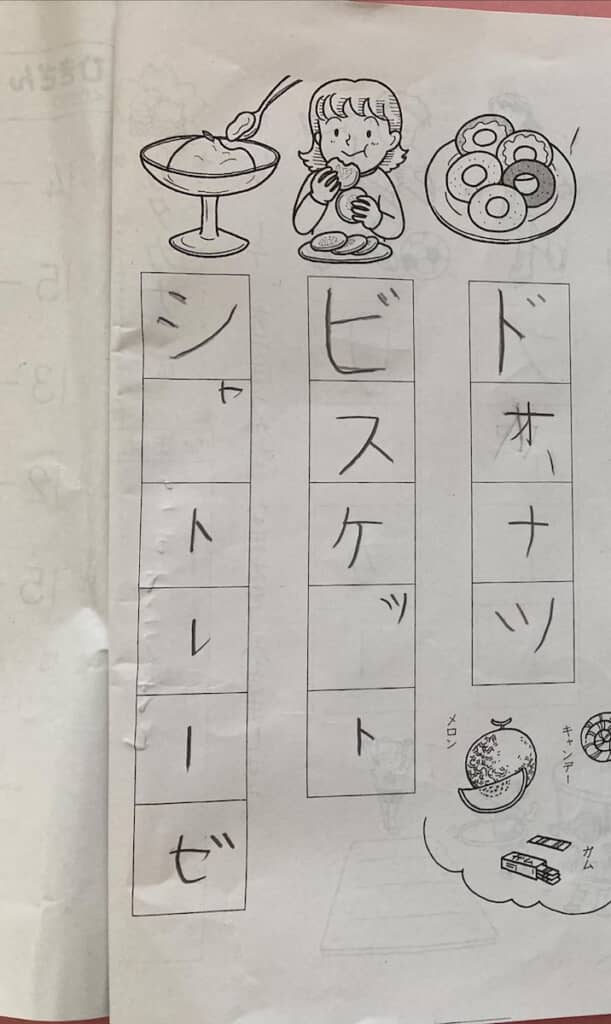 ドオ、ナツ
ビスケット
シャトレーゼ
キャンデー
メロン
ガム
ガム